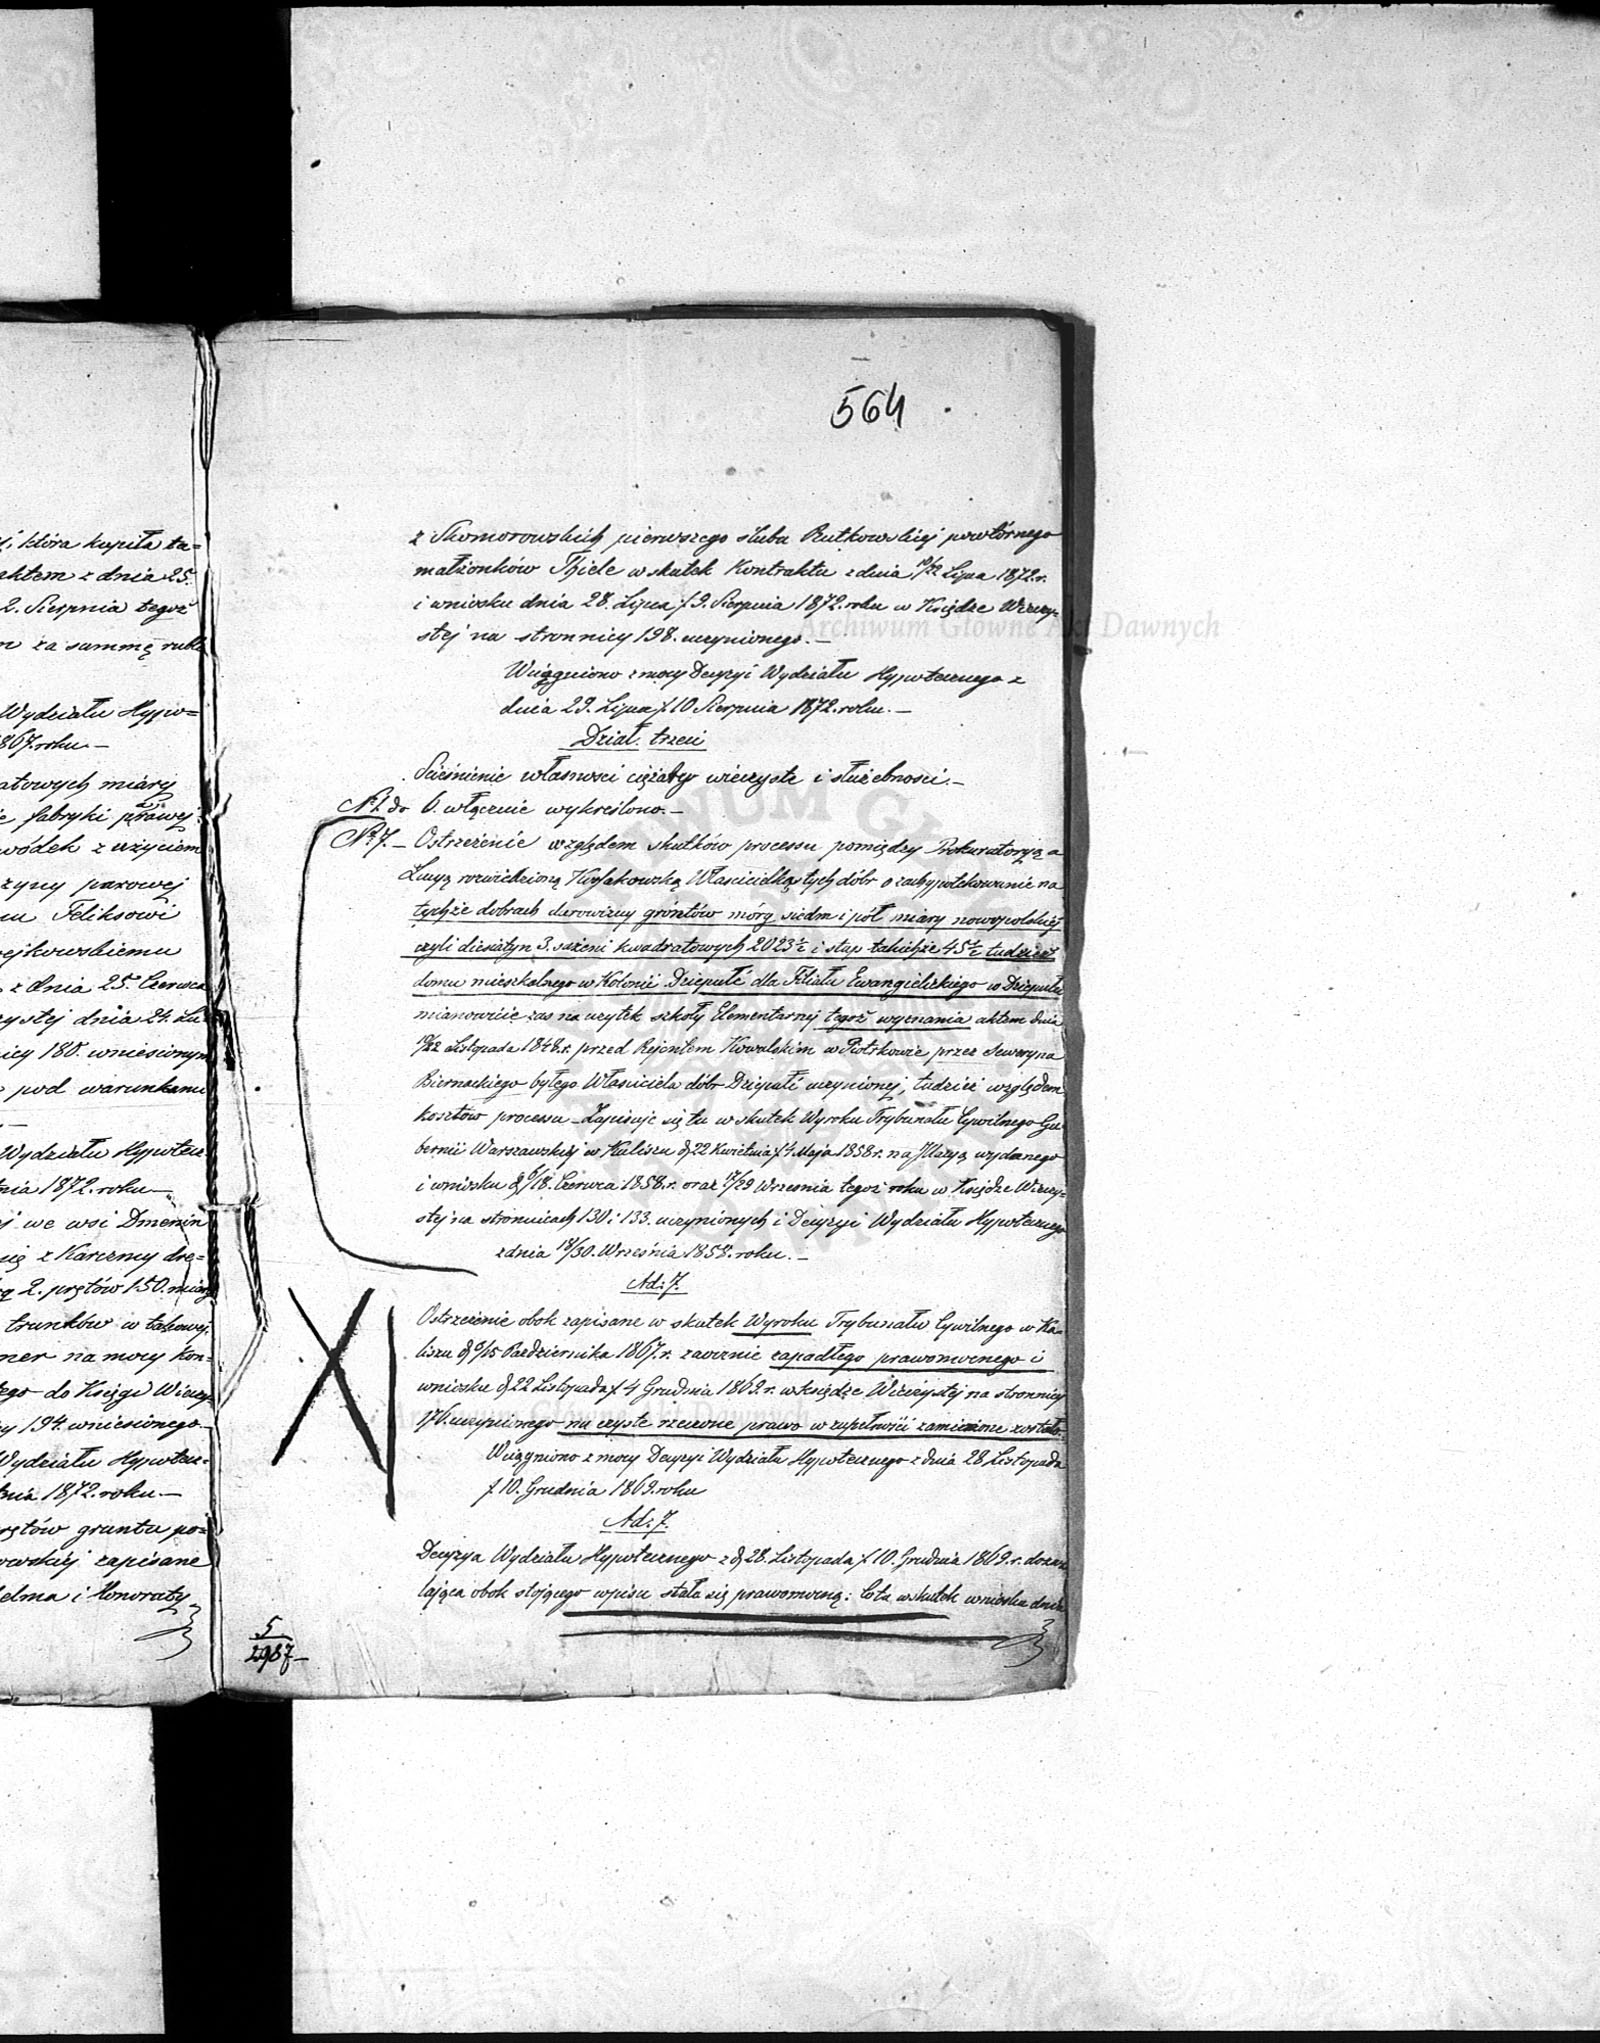 ę; która kupiła ta=
aktem z dnia 25.
2. Sierpnia tegoż
za summę rubli
Wydziału Hypo=
1867. roku.—
atowych miary
fabryki parowej
wódek z użyciem
zyny parowej
Feliksowi
ejkowskiemu
z dnia 25. Czerwca
czystej dnia 24. Lu
nicy 180. wniesionym
pod warunkami
Wydziału Hypotecz
nia 1872. roku.—
j we wsi Dmenin
cię z Karczmy dre=
2. prętów 150. miary
trunków w takowej
ner na mocy Kon=
tego do Księgi Wieczy
y 194. wniesionego.—
Wydziału Hypotecz=
nia 1872. roku.—
rętów gruntu po=
owskiej zapisane
elma i Honoraty
564
z Skomorowskich pierwszego ślubu Rutkowskiej powtórnego
małżonków Thiele w skutek Kontraktu z dnia 10/22 Lipca 1872. r.
i wniosku dnia 28. Lipca / 9. Sierpnia 1872. roku w Księdze Wieczy=
stej na stronnicy 198. uczynionego.—
Wciągniono z mocy Decyzyi Wydziału Hypotecznego z
dnia 29. Lipca / 10 Sierpnia 1872. roku.—
Dział trzeci
Scieśnienie własności ciężary wieczyste i służebności.—
No 1. do 6. włącznie wykreślono.—
No 7.— Ostrzeżenie względem skutków processu pomiędzy Prokuratoryą a
Lucyą rozwiedzioną Kossakowską Właścicielką tych dóbr o zahypotekowanie na
tychże dobrach darowizny gróntów mórg siedm i pół miary nowopolskiej
czyli diesiatyn 3. sążeni kwadratowych 2023½ i stup takichże 45½ tudzież
domu mieszkalnego w Kolonii Dziepułć dla Filiału Ewangielickiego w Dziepułci
mianowicie zaś na użytek szkoły Elementarnej tegoż wyznania aktem dnia
10/22 Listopada 1848. r. przed Rejentem Kowalskim w Piotrkowie przez Seweryna
Biernackiego byłego Właściciela dóbr Dziepułć uczynionej, tudzież względem
kosztów processu – Zapisuje się tu w skutek Wyroku Trybunału Cywilnego Gu
bernii Warszawskiej w Kaliszu d. 22 Kwietnia / 4 Maja 1858 r. na Illacyą wydanego
i wniosku d. 6/18. Czerwca 1858. r. oraz 17/29 Września tegoż roku w Księdze Wieczy=
stej na stronnicach 130 i 133. uczynionych i Decyzyi Wydziału Hypotecznego
z dnia 18/30. Września 1858. roku.—
Ad. 7.
Ostrzeżenie obok zapisane w skutek Wyroku Trybunału Cywilnego w Ka=
liszu d. 3/15 Października 1867. r. zaocznie zapadłego prawomocnego i
wniosku d. 22 Listopada / 4 Grudnia 1869. r. w księdze Wieczystej na stronnicy
176. uczynionego na czyste rzeczone prawo w zupełności zamienione zostało.
Wciągniono z mocy Decyzyi Wydziału Hypotecznego z dnia 28 Listopada
/ 10. Grudnia 1869. roku
Ad. 7.
Decyzya Wydziału Hypotecznego z d. 28. Listopada / 10. Grudnia 1869. r. dozwa
lająca obok stojącego wpisu stała się prawomocną: Co tu w skutek wniosku dnia
5
2987–
Archiwum Główne Akt Dawnych
Archiwum Główne Akt Dawnych